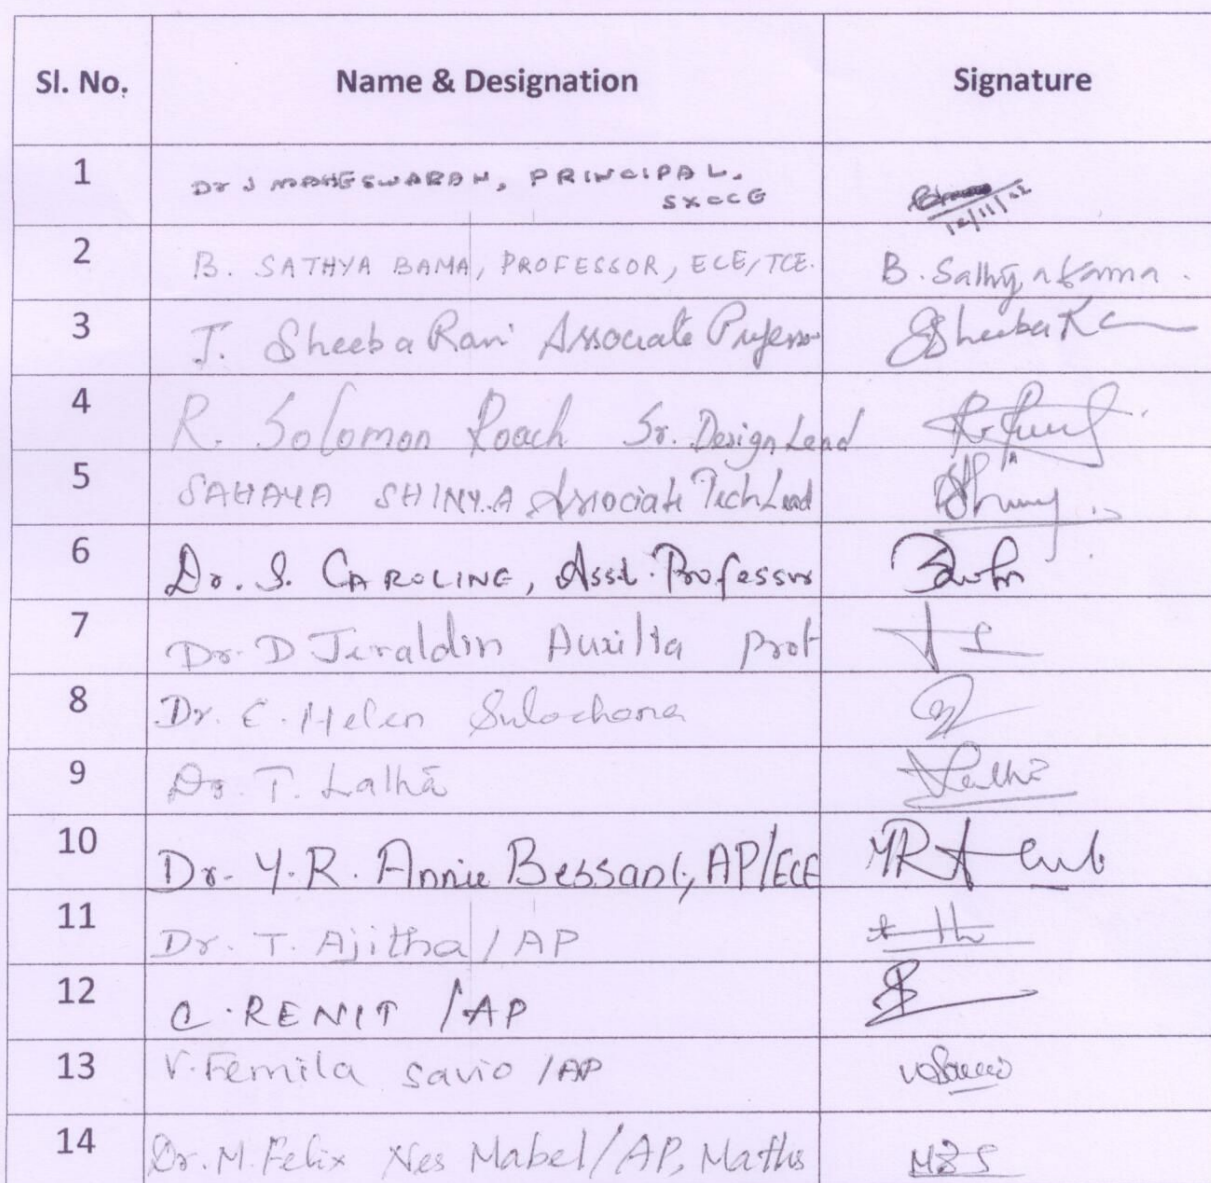 Sl. No. Name & Designation Signature
1 Dr J MAHESWARAN, PRINCIPAL,
SXCCE
12/11/22
2 B. SATHYA BAMA, PROFESSOR, ECE/TCE. B. Sathya bama.
3 J. Sheeba Rani Associate Professor Sheeba R
4 R. Solomon Roach Sr. Design Lead
5 SAHAYA SHINY.A Associate Tech Lead
6 Dr. S. CAROLINE, Asst. Professor
7 Dr. D Jeraldin Auxilia Prof
8 Dr. C. Helen Sulochana
9 Dr. T. Latha Latha
10 Dr. Y.R. Annie Bessant, AP/ECE
11 Dr. T. Ajitha / AP
12 C. RENIT / AP
13 V. Femila Savio / AP
14 Dr. M. Felix Xes Mabel / AP, Maths